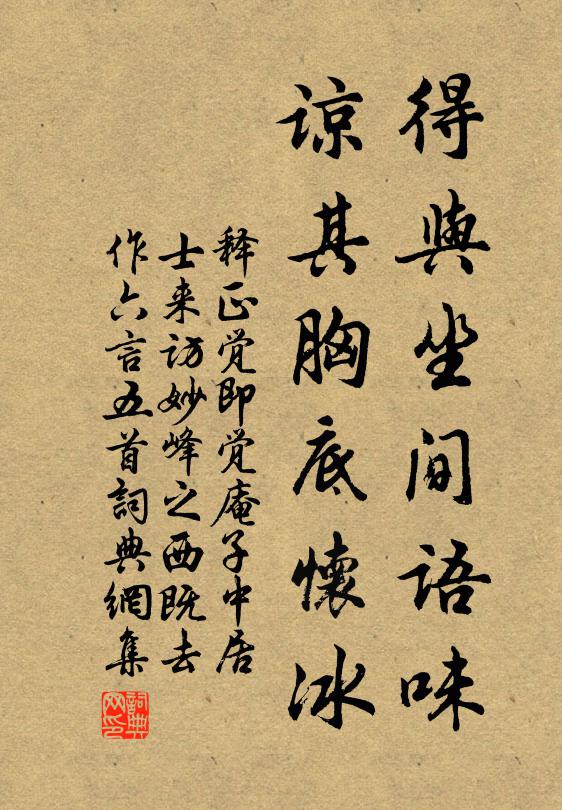 得與坐间語味
谅其胸底懷冰
释正觉即觉庵子中居
士来访妙峰之西既去
作六言五首詞典網集
詞典网印